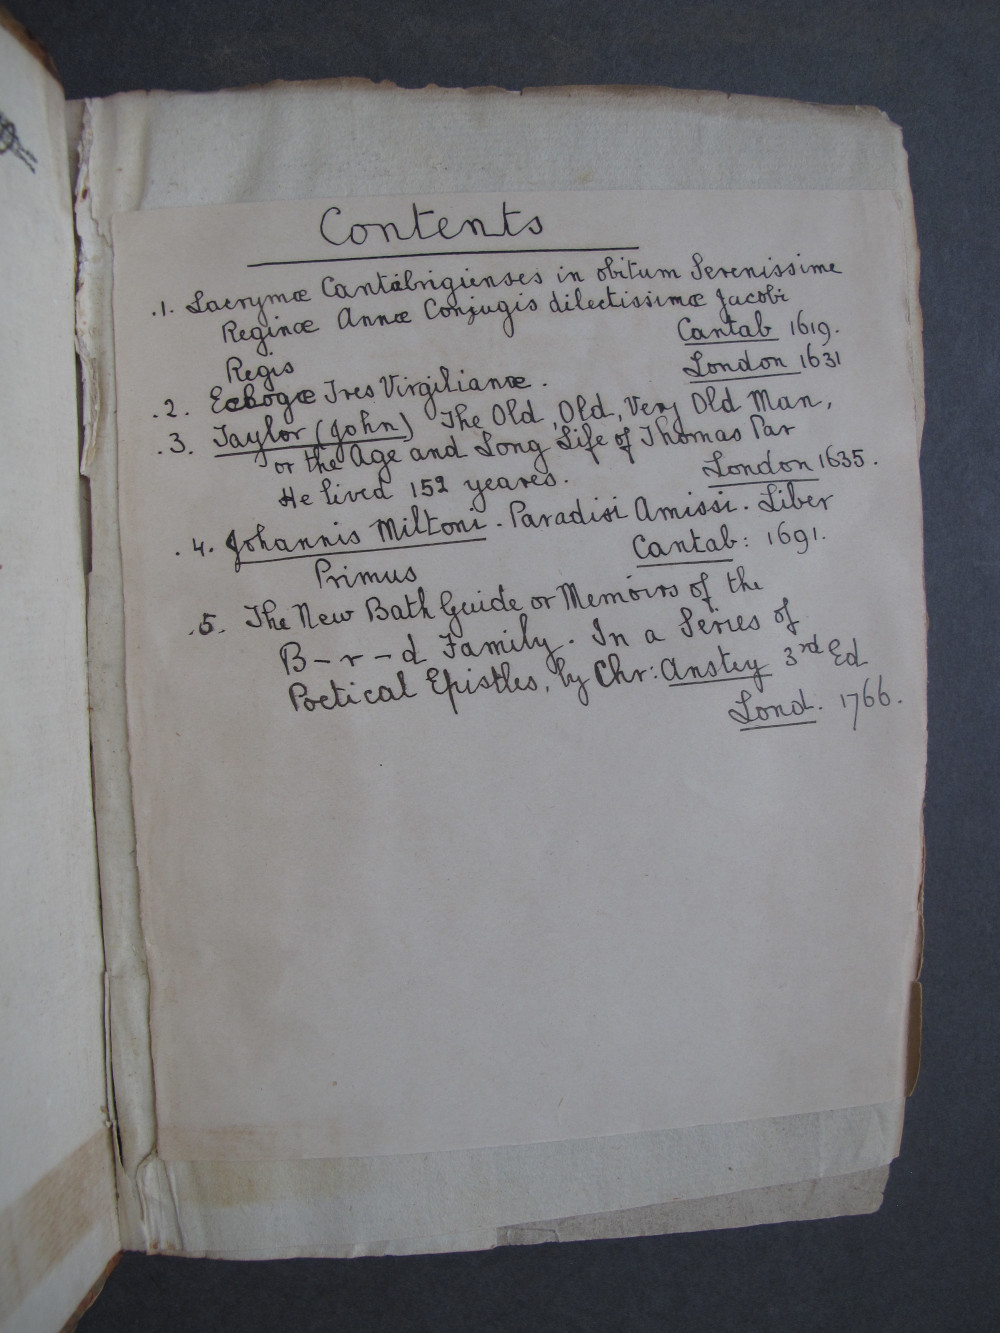 Contents
.1. Lacrymæ Cantabrigienses in obitum Serenissime
Reginæ Annæ Conjugis dilectissimæ Jacobi
Regis Cantab 1619.
.2. Eclogæ Tres Virgilianæ. London 1631
.3. Taylor (John) The Old, Old, Very Old Man,
or the Age and Long Life of Thomas Par
He lived 152 yeares. London 1635.
.4. Johannis Miltoni. Paradisi Amissi. Liber
Primus Cantab: 1691.
.5. The New Bath Guide or Memoirs of the
B-r-d Family. In a Series of
Poetical Epistles, by Chr: Anstey 3rd Ed
Lond. 1766.